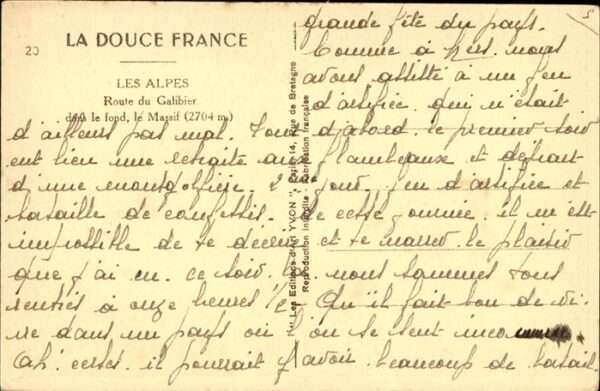 20
5
LA DOUCE FRANCE
LES ALPES
Route du Galibier
dans le fond, le Massif (2704 m.)
"Les Editions d'Art YVON", Paris, 14, Rue de Bretagne
Reproduction interdite - Fabrication française
grande fête du pays.
Comme à nous
avons assisté à un feu
d'artifice qui n'était
d'ailleurs pas mal. Tout d'abord le premier soir
eut lieu une retraite aux flambeaux et départ
d'une mongolfière. 2 jour. feu d'artifice et
bataille de confettis. De cette journée. il m'est
impossible de te décrire et te narrer le plaisir
que j'ai eu. ce soir. nous sommes tous
rentrés à onze heures 1/2. Qu'il fait bon de vi-
vre dans un pays où l'on se sent
Ah! certes. il pourrait y avoir beaucoup de